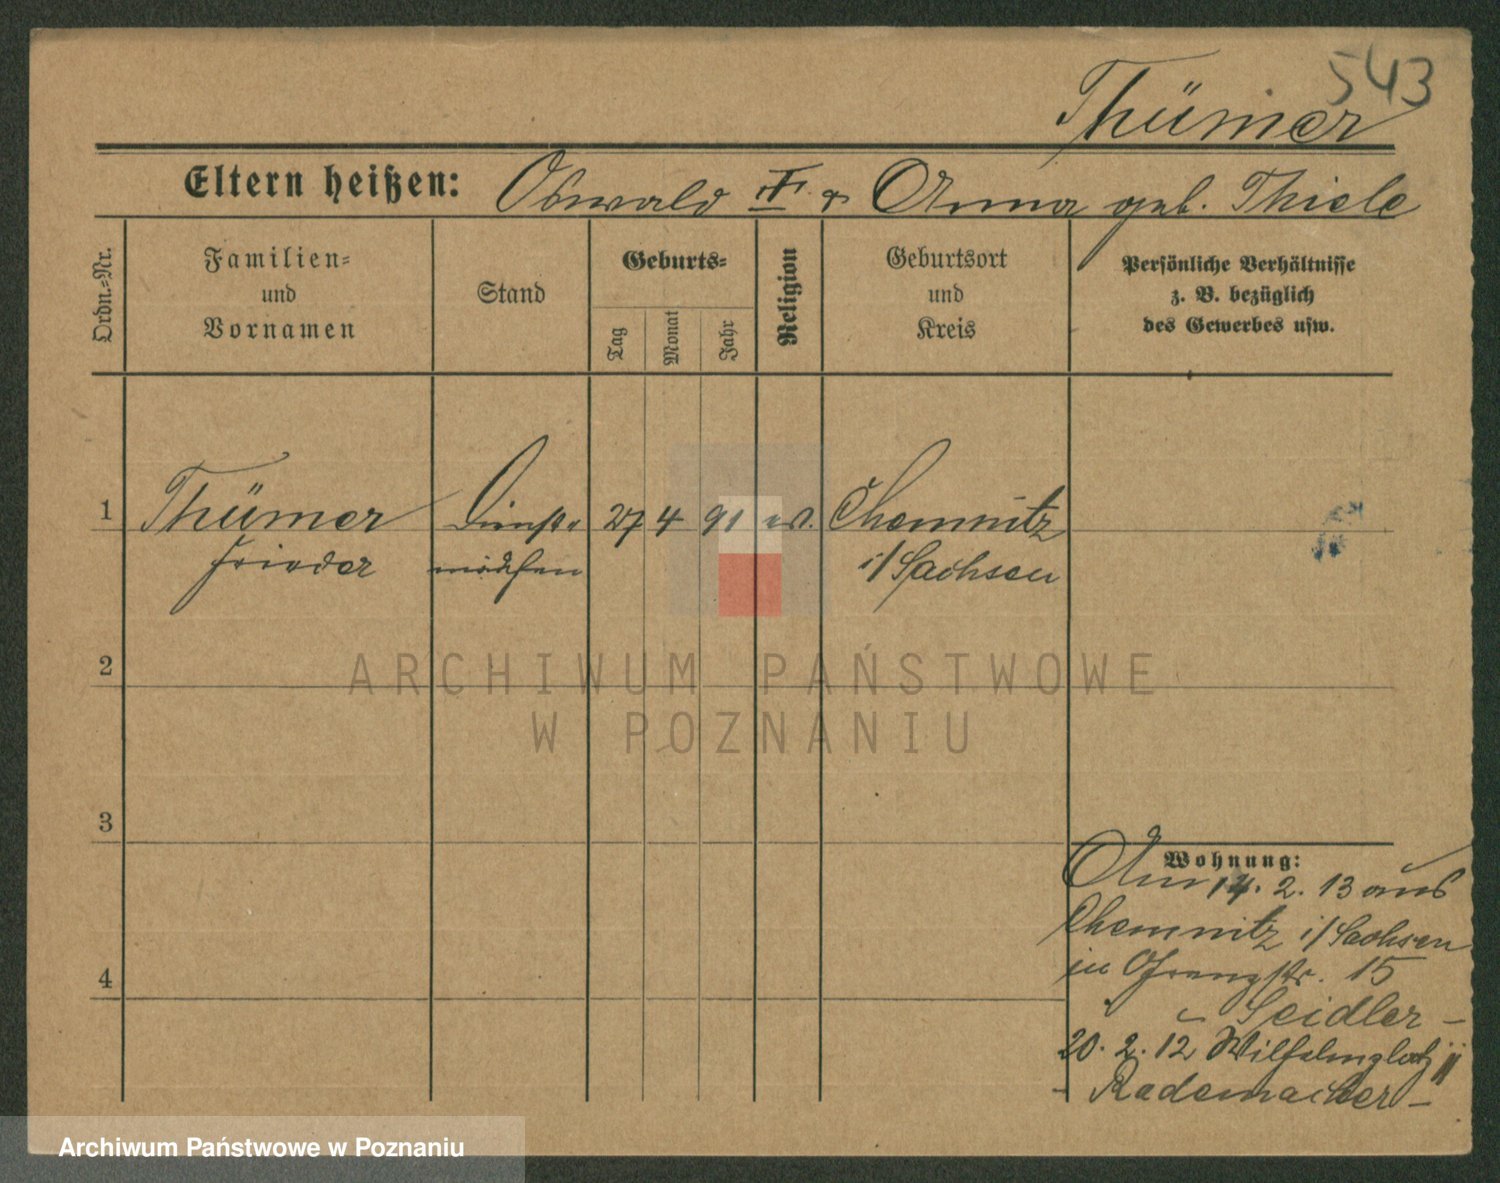 543
Thümer
Eltern heißen: Oswald u. Anna geb. Thiele
Ordn.=Nr.
Familien=
und
Vornamen
Stand
Geburts=
Tag
Monat
Jahr
Religion
Geburtsort
und
Kreis
Persönliche Verhältnisse
z. B. bezüglich
des Gewerbes usw.
1 Thümer Dienst= 27 4 91 ev. Chemnitz
mädchen i/Sachsen
2
ARCHIWUM PAŃSTWOWE
W POZNANIU
3
Wohnung:
Am 14. 2. 13 aus
Chemnitz i/Sachsen
in 15
4
- Seidler -
20. 2. 12 Wilhelmplatz
- Rademacher -
Archiwum Państwowe w Poznaniu